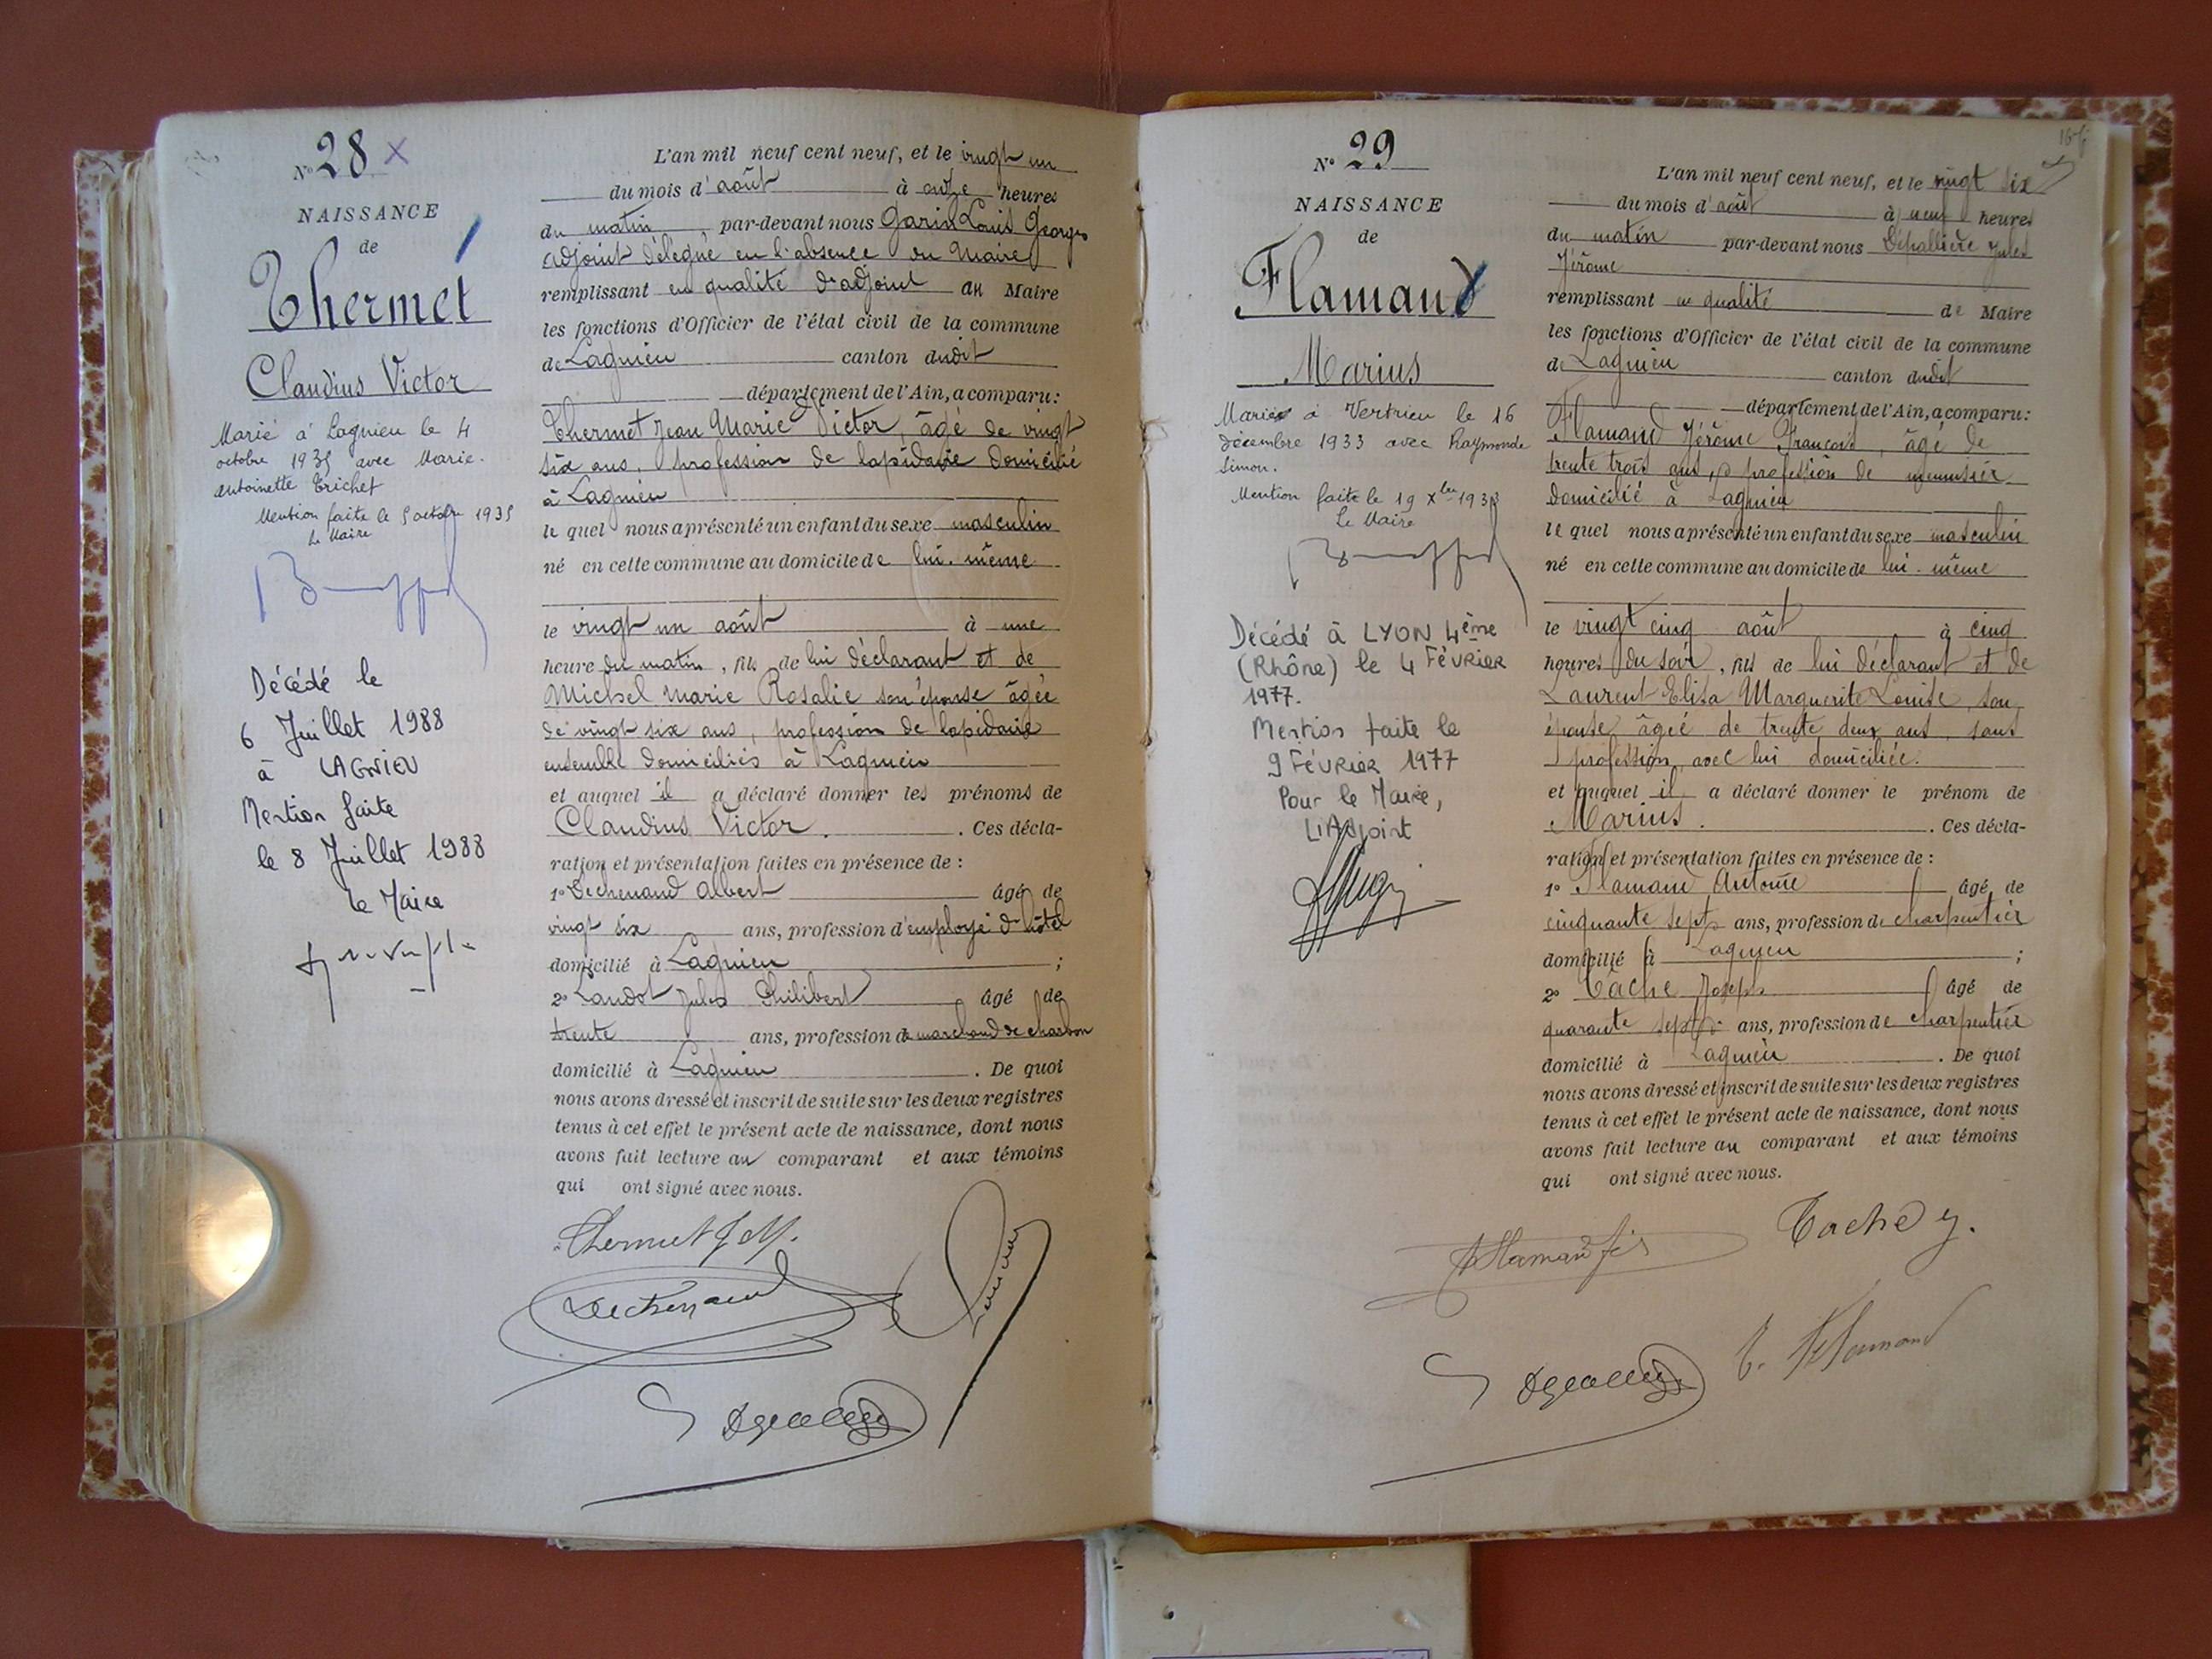 N° 28 X
NAISSANCE
de
Thermet
Claudius Victor
Marié à Lagnieu le 4
octobre 1935 avec Marie-
Antoinette Trichet
Mention faite le 5 octobre 1935
Le Maire
Décédé le
6 Juillet 1988
à LAGNIEU
Mention faite
le 8 Juillet 1988
le Maire
L'an mil neuf cent neuf, et le vingt un
du mois d'août à onze heures
du matin par-devant nous Garin Louis Georges
adjoint délégué en l'absence du Maire
remplissant en qualité d'adjoint au Maire
les fonctions d'Officier de l'état civil de la commune
de Lagnieu canton dudit
département de l'Ain, a comparu:
Thermet Jean Marie Victor, âgé de vingt
six ans, profession de lapidaire domicilié
à Lagnieu
lequel nous a présenté un enfant du sexe masculin
né en cette commune au domicile de lui-même
le vingt un août à une
heure du matin, fils de lui déclarant et de
Michel Marie Rosalie son épouse âgée
de vingt six ans, profession de lapidaire
ensemble domiciliés à Lagnieu
et auquel il a déclaré donner les prénoms de
Claudius Victor. . Ces décla-
ration et présentation faites en présence de :
1° Dechenaud Albert âgé de
vingt six ans, profession d'employé d'hôtel
domicilié à Lagnieu ;
2° Landot Jules Philibert âgé de
trente ans, profession de marchand de charbon
domicilié à Lagnieu . De quoi
nous avons dressé et inscrit de suite sur les deux registres
tenus à cet effet le présent acte de naissance, dont nous
avons fait lecture au comparant et aux témoins
qui ont signé avec nous.
Thermet J M.
Dechenaud
N° 29
NAISSANCE
de
Flamand
Marius
Marié à Vertrieu le 16
décembre 1933 avec Raymonde
Simon.
Mention faite le 19 Xbre 1933
Le Maire
Décédé à LYON 4ème
(Rhône) le 4 FÉVRIER
1977.
Mention faite le
9 FÉVRIER 1977
Pour le Maire,
L'Adjoint
L'an mil neuf cent neuf, et le vingt six
du mois d'août à neuf heures
du matin par-devant nous Dépallière Jules
Jérôme
remplissant en qualité de Maire
les fonctions d'Officier de l'état civil de la commune
de Lagnieu canton dudit
département de l'Ain, a comparu:
Flamand Jérôme François, âgé de
trente trois ans, profession de menuisier
domicilié à Lagnieu
lequel nous a présenté un enfant du sexe masculin
né en cette commune au domicile de lui-même
le vingt cinq août à cinq
heures du soir, fils de lui déclarant et de
Laurent Elisa Marguerite Louise, son
épouse âgée de trente deux ans, sans
profession, avec lui domiciliée.
et auquel il a déclaré donner le prénom de
Marius. . Ces décla-
ration et présentation faites en présence de :
1° Flamand Antoine âgé de
cinquante sept ans, profession de charpentier
domicilié à Lagnieu ;
2° Tâche Joseph âgé de
quarante sept ans, profession de charpentier
domicilié à Lagnieu . De quoi
nous avons dressé et inscrit de suite sur les deux registres
tenus à cet effet le présent acte de naissance, dont nous
avons fait lecture au comparant et aux témoins
qui ont signé avec nous.
Flamand fils
Tache J.
Flamand